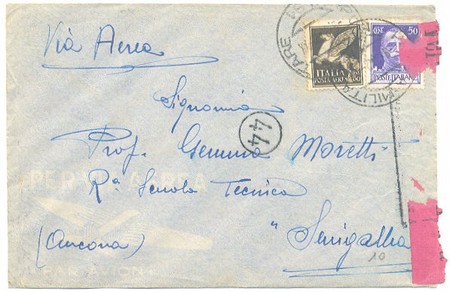 Via Aerea
ITALIA
POSTA AEREA
CENT. 50
POSTE ITALIANE
MILITARE
44
Signorina
Prof. Gemma Moretti
Ra Scuola Tecnica
(Ancona)
Senigallia
PER VIA AEREA
PAR AVION
10